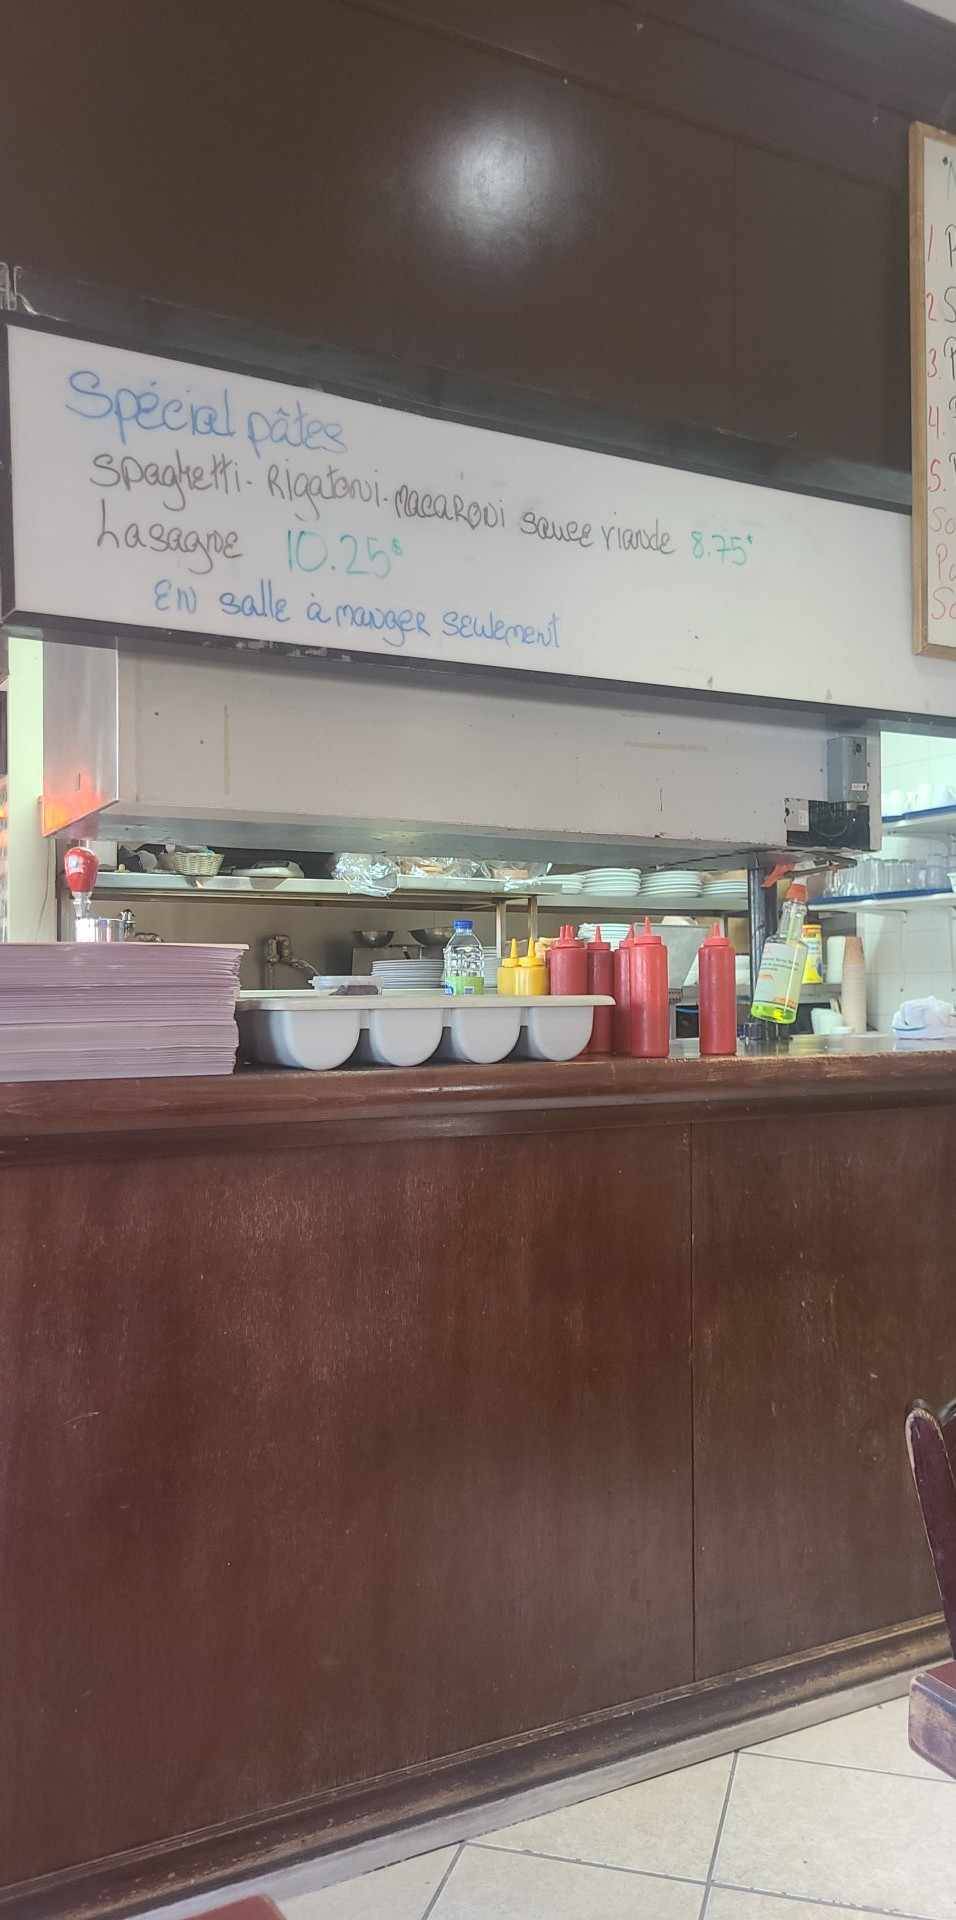 Spécial pâtes
Spaghetti - Rigatoni - macaroni sauce viande 8.75$
Lasagne 10.25$
En salle à manger seulement
1
2
3.
4.
5.